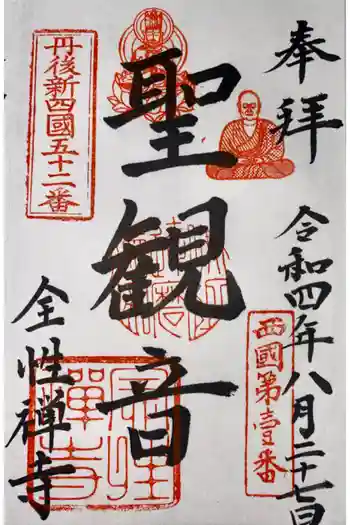 奉拝
令和四年八月二十七日
西國第壹番
聖観音
丹後新四國五十二番
全性禪寺